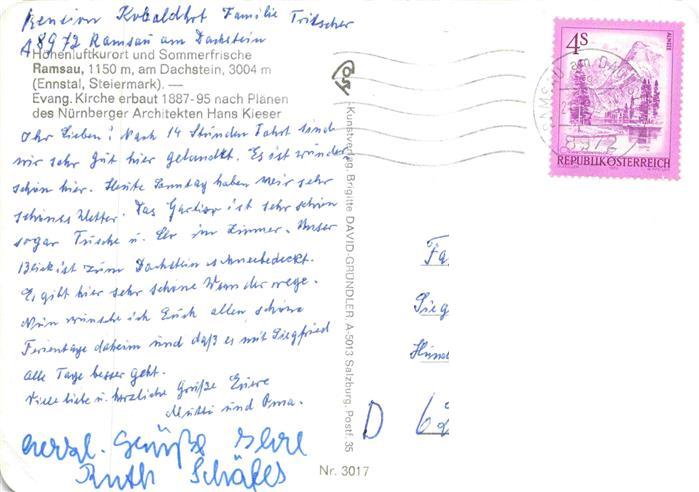 Pension Kobaldhof Familie Tritscher
A 8972 Ramsau am Dachstein
Höhenluftkurort und Sommerfrische
Ramsau, 1150 m, am Dachstein, 3004 m
(Ennstal, Steiermark). —
Evang. Kirche erbaut 1887-95 nach Plänen
des Nürnberger Architekten Hans Kieser
Ihr Lieben! Nach 14 Stunden Fahrt sind
wir sehr gut hier gelandet. Es ist wunder
schön hier. Heute Sonntag haben wir sehr
schönes Wetter. Das Quartier ist sehr schön
sogar Dusche u. im Zimmer. Unser
Blick ist zum Dachstein schneebedeckt.
Es gibt hier sehr schöne Wanderwege.
Nun wünsche ich Euch allen schöne
Ferientage daheim und daß es mit Siegfried
alle Tage besser geht.
Viele liebe u. herzliche Grüße Eure
Mutti und Oma.
herzl. Grüße
Ruth Schäfer
Kunstverlag Brigitte DAVID-GRÜNDLER A-5013 Salzburg, Postf. 35
Nr. 3017
4 S
ALMSEE
REPUBLIK ÖSTERREICH
RAMSAU am DACH
8972
Fa
Sieg
D 62